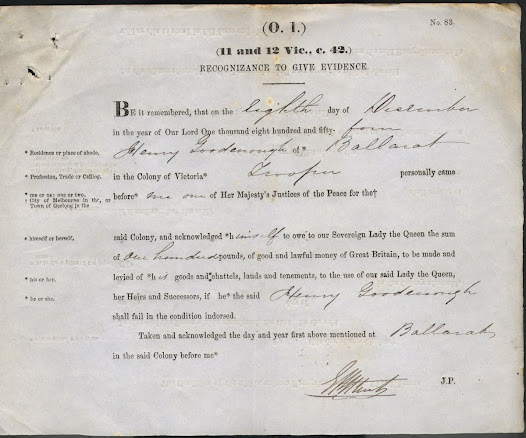 No. 83.
(O. 1.)
(11 and 12 Vic., c. 42.)
RECOGNIZANCE TO GIVE EVIDENCE.
BE it remembered, that on the eighth day of December
in the year of Our Lord One thousand eight hundred and fifty-four
* Residence or place of abode. Henry Goodenough of* Ballarat
* Profession, Trade or Calling. in the Colony of Victoria* Trooper personally came
* me or us: one or two, before* me one of Her Majesty's Justices of the Peace for the†
† City of Melbourne in the, or
Town of Geelong in the
* himself or herself, said Colony, and acknowledged *himself to owe to our Sovereign Lady the Queen the sum
of One hundred pounds, of good and lawful money of Great Britain, to be made and
* his or her. levied of *his goods and chattels, lands and tenements, to the use of our said Lady the Queen,
* he or she. her Heirs and Successors, if he* the said Henry Goodenough
shall fail in the condition indorsed.
Taken and acknowledged the day and year first above mentioned at Ballarat
in the said Colony before me*
J.P.